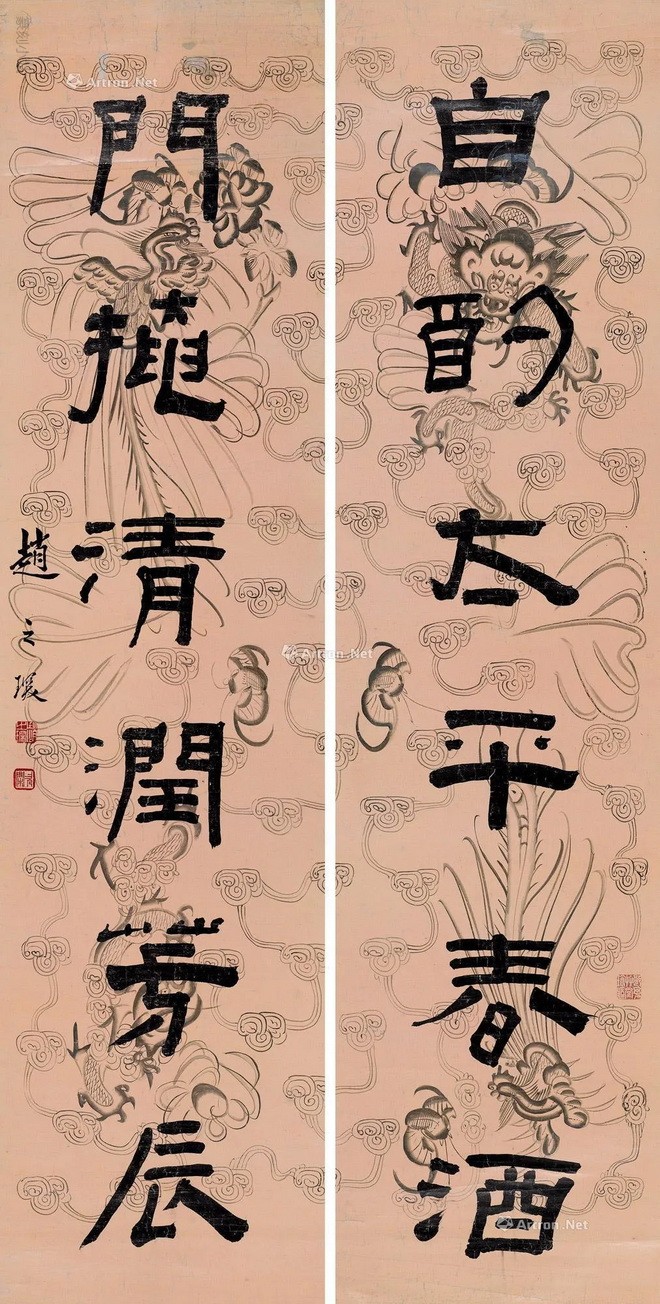 自酌太平春酒
門
清潤芳辰
趙之
Artron.Net
Artron.Net
Artron.Net